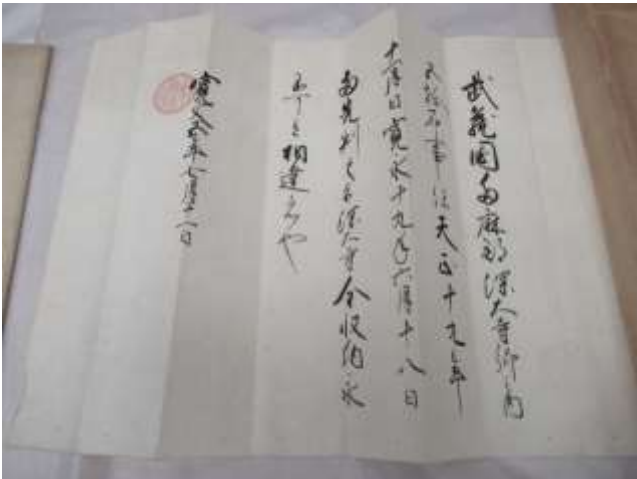 武蔵國多麻郡深大寺郷内
五拾石事任天正十九年
十一月日寛永十九年六月十八日
両先判之旨深大寺全収納永
不可有相違者也
寛文五年七月十一日